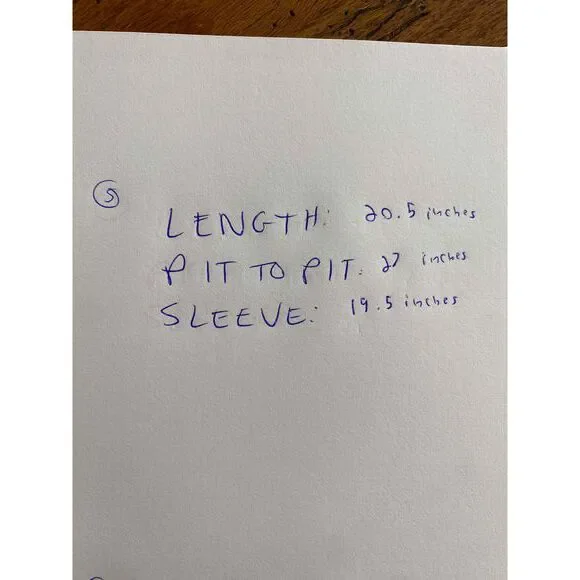 5
LENGTH: 20.5 inches
PIT TO PIT: 27 inches
SLEEVE: 19.5 inches